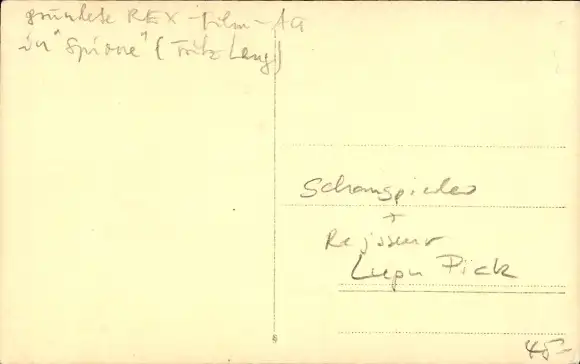 gründete REX-Film-AG
in "Spione" (Fritz Lang)
Schauspieler
+
Rejisseur
Lupu Pick
45-